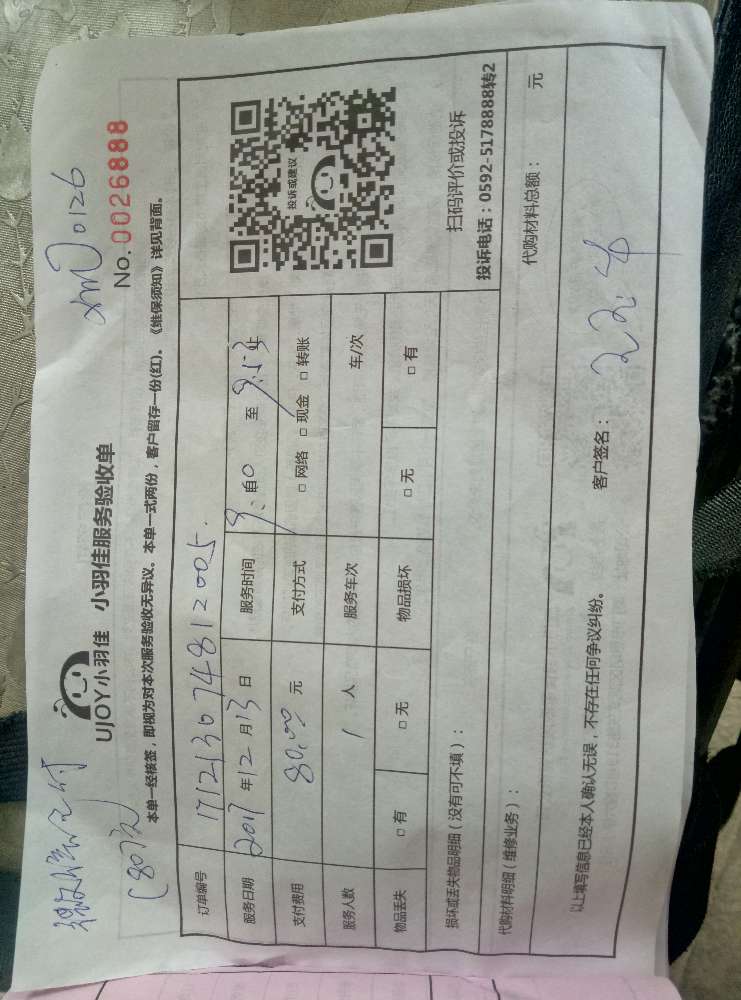 (80元)
xmJ0126
UJOY小羽佳 小羽佳服务验收单
No.0026888
本单一经核签，即视为对本次服务验收无异议。本单一式两份，客户留存一份(红)。《维保须知》详见背面。
订单编号 171213074812005.
服务日期 2017年12月13日 服务时间 至9.53止
支付费用 80.00元 支付方式 □网络 □现金 □转账
服务人数 1人 服务车次 车/次
物品丢失 □有 □无 物品损坏 □无 □有
投诉或建议
扫码评价或投诉
投诉电话：0592-5178888转2
损坏或丢失物品明细（没有可不填）：
代购材料明细（维修业务）： 代购材料总额： 元
以上填写信息已经本人确认无误，不存在任何争议纠纷。 客户签名：